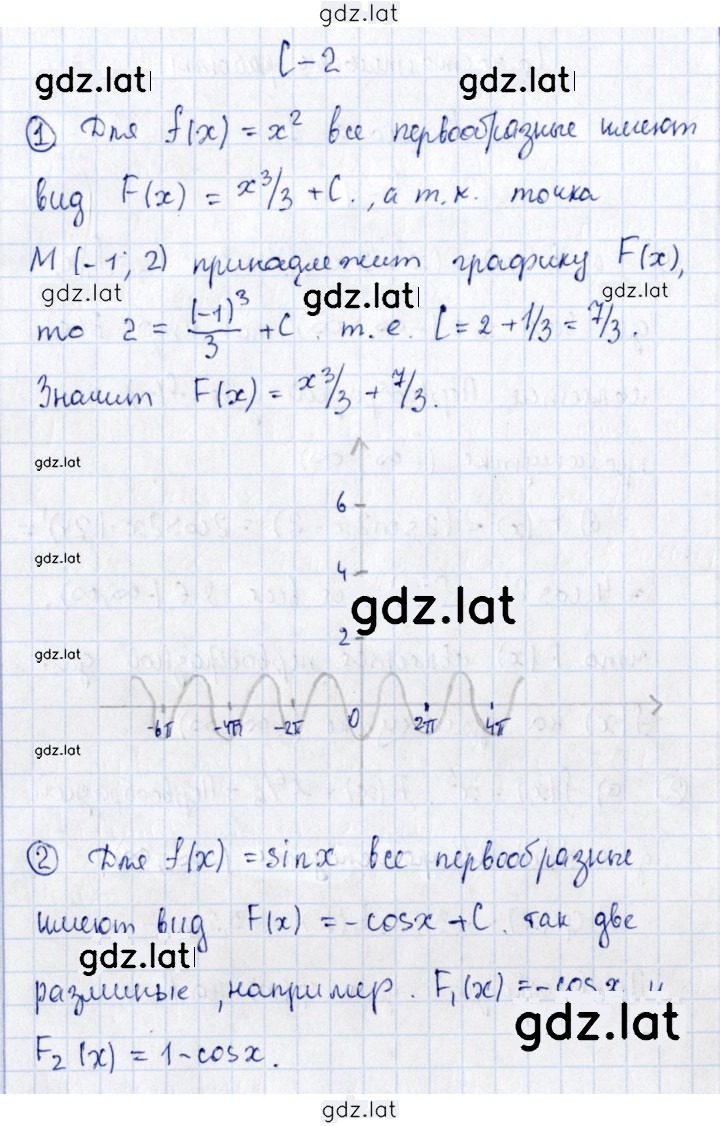 gdz.lat
С-2
gdz.lat gdz.lat
① Для f(x) = x² все первообразные имеют
вид F(x) = x³/3 + C., а т.к. точка
M (-1; 2) принадлежит графику F(x),
gdz.lat gdz.lat gdz.lat
то 2 = (-1)³/3 + C. т.е. C = 2 + 1/3 = 7/3.
Значит F(x) = x³/3 + 7/3.
gdz.lat
6
gdz.lat
4
gdz.lat
2
gdz.lat
-6π -4π -2π 0 2π 4π
gdz.lat
② Для f(x) = sinx все первообразные
имеют вид F(x) = -cosx + C. так две
gdz.lat
различные, например. F₁(x) = -cosx и
gdz.lat
F₂(x) = 1-cosx.
gdz.lat